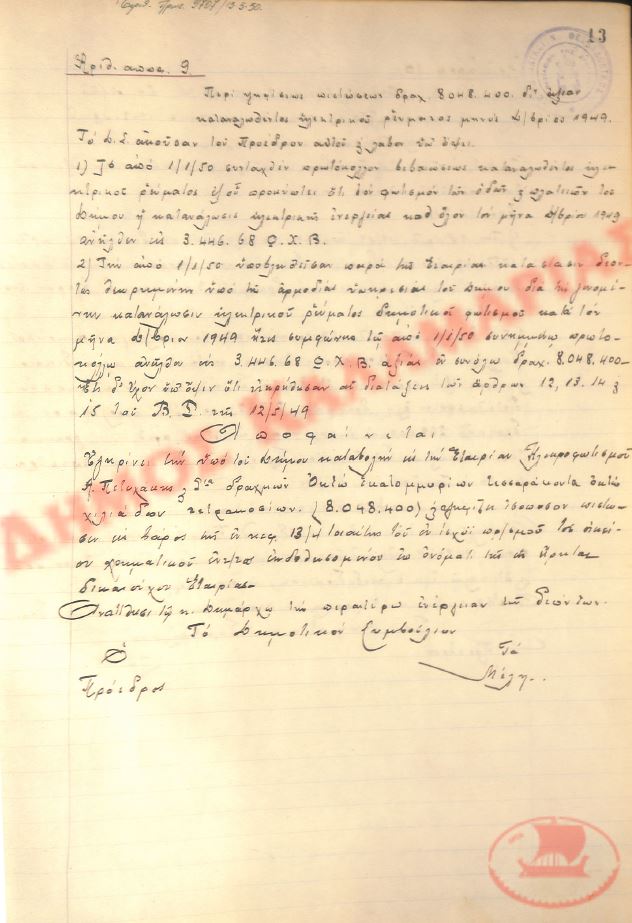 13
Αριθ. αποφ. 9.
Περί ψηφίσεως πιστώσεως δραχ. 8.048.400. δι' αξίαν
καταναλωθέντος ηλεκτρικού ρεύματος μηνός Δ/βρίου 1949.
Το Δ.Σ. ακούσαν του Προέδρου αυτού & λαβόν υπ' όψει.
1) Το από 1/1/50 συνταχθέν πρωτόκολλον βεβαιώσεως καταναλωθέντος ηλε-
κτρικού ρεύματος εξ ού προκύπτει ότι δια φωτισμόν των οδών & πλατειών του
Δήμου η κατανάλωσις ηλεκτρικής ενεργείας καθ' όλον τον μήνα Δ/βριον 1949
ανήλθεν εις 3.446.68 Ω.Χ.Β.
2) Την από 1/1/50 υποβληθείσαν παρά της Εταιρίας κατάστασιν δεόν-
τως θεωρημένην υπό της αρμοδίας υπηρεσίας του Δήμου διά την γενομέ-
νην κατανάλωσιν ηλεκτρικού ρεύματος δημοτικού φωτισμού κατά τον
μήνα Δ/βριον 1949 ήτις συμφώνως τω από 1/1/50 συνημμένω πρωτο-
κόλλω ανήλθεν εις 3.446.68 Ω.Χ.Β. αξίας εν συνόλω δραχ. 8.048.400-
υπ' όψιν ότι ετηρήθησαν αι διατάξεις των άρθρων 12, 13, 14 &
15 του Β.Δ. της 12/5/49
Αποφαίνεται
Εγκρίνει την υπό του Δήμου καταβολήν εις την Εταιρίαν Ηλεκτροφωτισμού
δραχμών Οκτώ εκατομμυρίων τεσσαράκοντα οκτώ
χιλιάδων τετρακοσίων. (8.048.400) & ψηφίζει ισόποσον πίστω-
σιν εις βάρος της εν κεφ. του εν ισχύι πρ/σμού του οικεί-
ου χρηματικού εντ/τος εκδοθησομένου επ' ονόματι της
δικαιούχου Εταιρίας-
Αναθέτει τω κ. Δημάρχω την περαιτέρω ενέργειαν των δεόντων.
Το Δημοτικόν Συμβούλιον
Ο Τα
Πρόεδρος Μέλη.